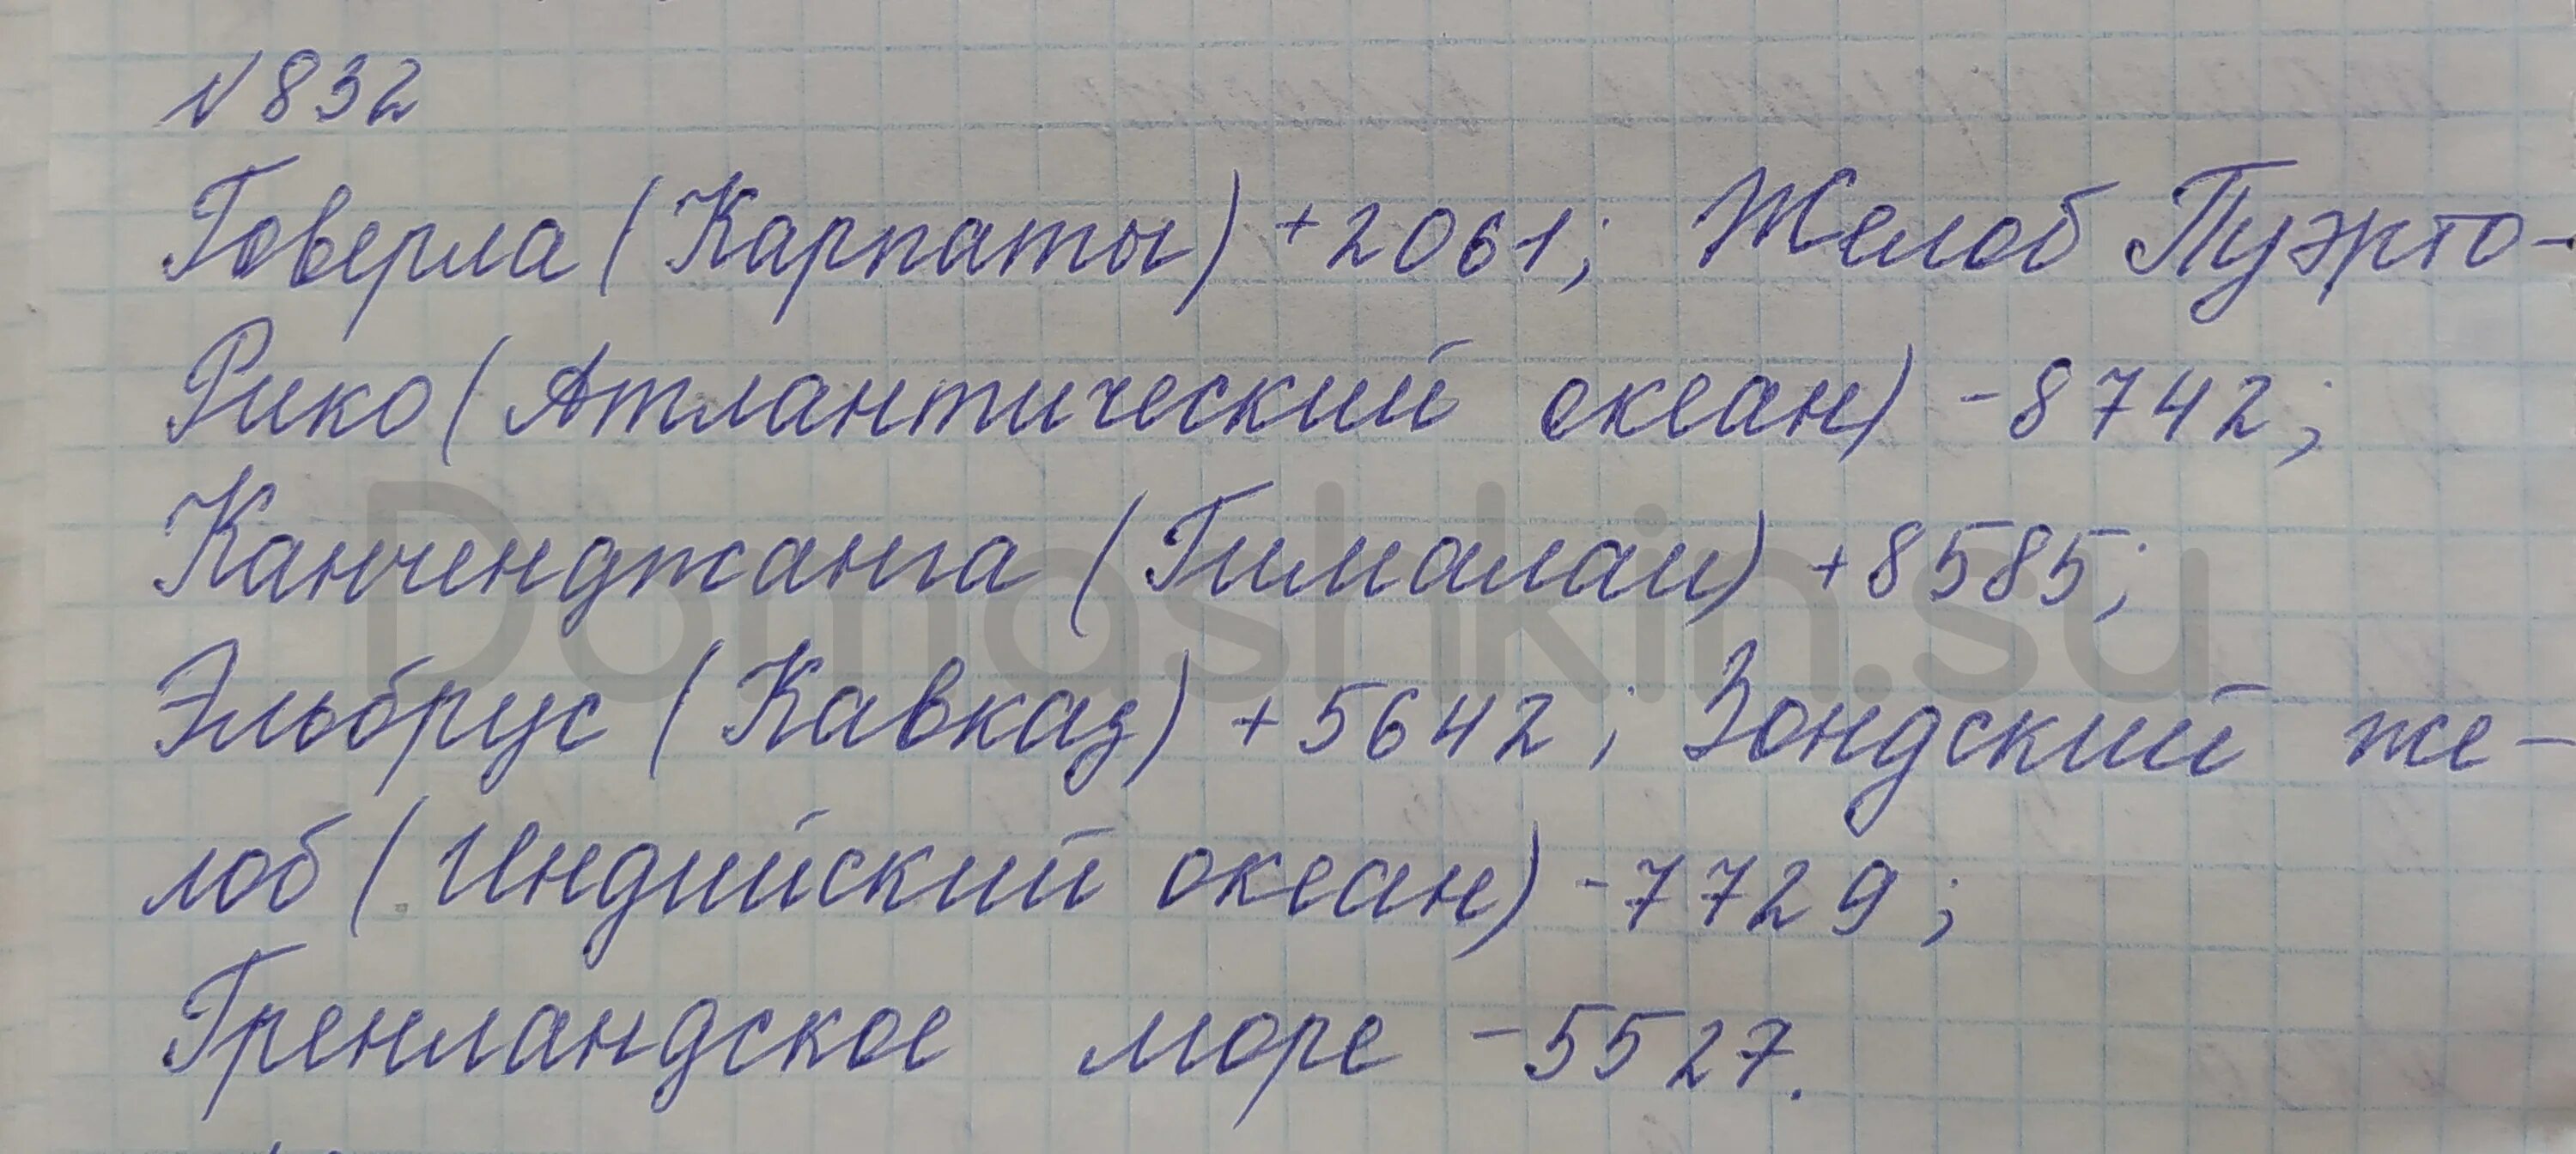 №832
Говерла (Карпаты) +2061; Желоб Пуэрто-
Рико (Атлантический океан) -8742;
Канченджанга (Гималаи) +8585;
Эльбрус (Кавказ) +5642; Зондский же-
лоб (Индийский океан) -7729;
Гренландское море -5527.
Domashkin.su